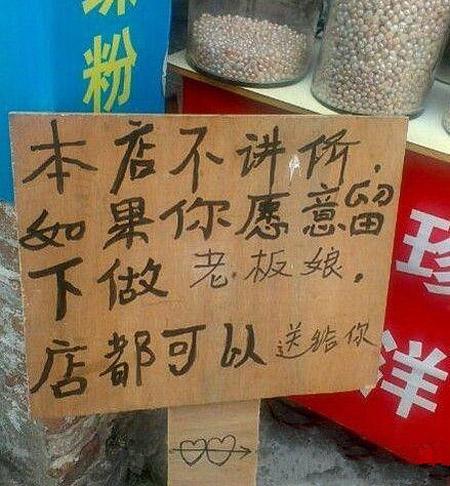 粉
本店不讲价.
如果你愿意留
下做老板娘.
店都可以送给你
珍
洋